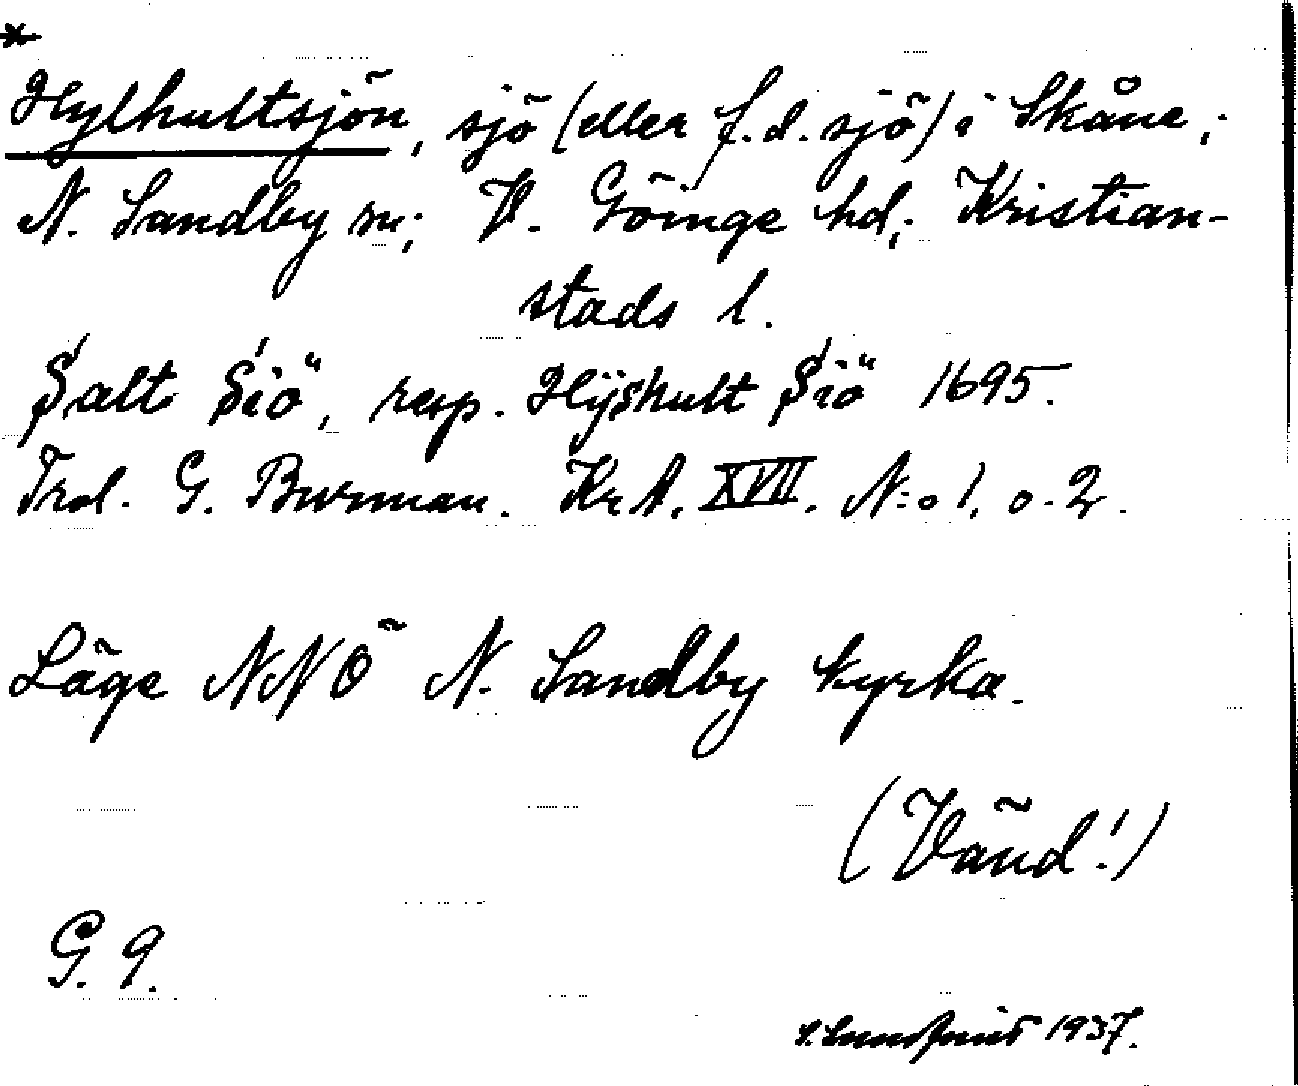 *
Hylhultsjön, sjö (eller f.d. sjö) i Skåne;
N. Sandby sn; V. Göinge hd; Kristian-
stads l.
Salt Siö, resp. Hÿshult Siö 1695.
Trol. G. Burman. Kr A. XVII. N:o 1. o. 2.
Läge NNÖ N. Sandby kyrka.
(Vänd!)
G. 9.
1937.